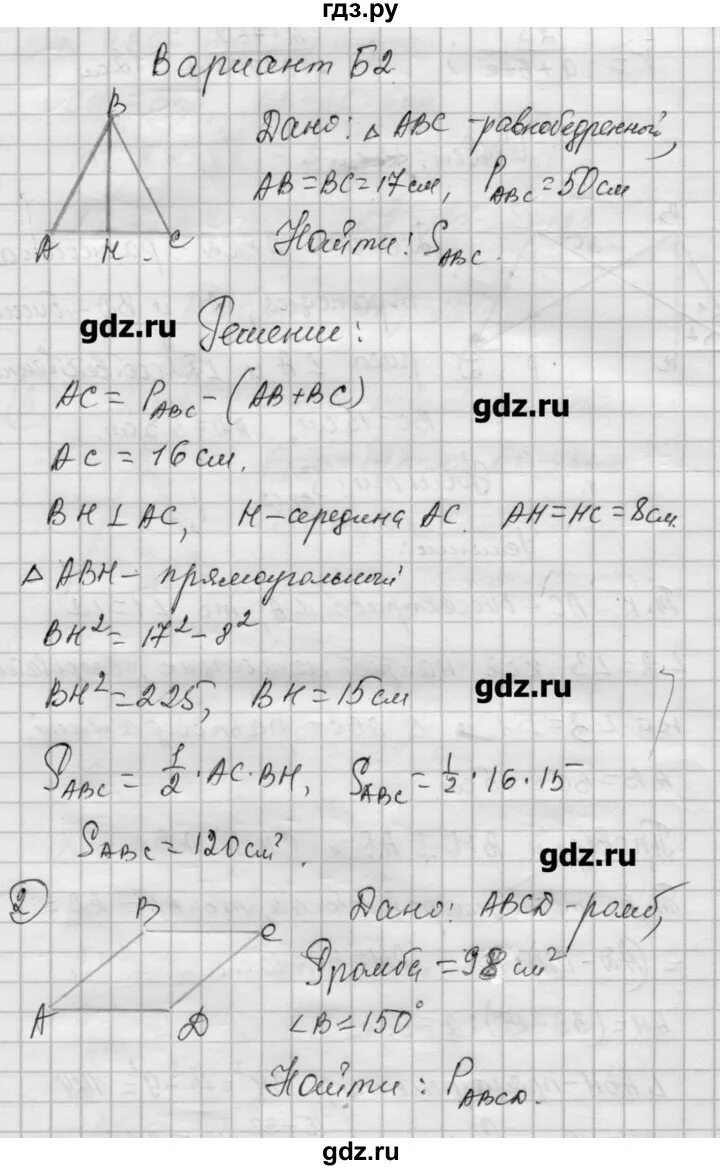 гдз.ру
Вариант Б2
B
A H C
Дано: △ ABC - равнобедренный,
AB = BC = 17 см, P_ABC = 50 см
Найти: S_ABC.
gdz.ru
Решение:
AC = P_ABC - (AB + BC)
gdz.ru
AC = 16 см.
BH ⊥ AC, H - середина AC. AH = HC = 8 см.
△ ABH - прямоугольный
BH² = 17² - 8²
BH² = 225, BH = 15 см
gdz.ru
S_ABC = 1/2 · AC · BH, S_ABC = 1/2 · 16 · 15
S_ABC = 120 см².
gdz.ru
2
B C
A D
Дано: ABCD - ромб,
Sромба = 98 см²
∠B = 150°
Найти: P_ABCD.
gdz.ru